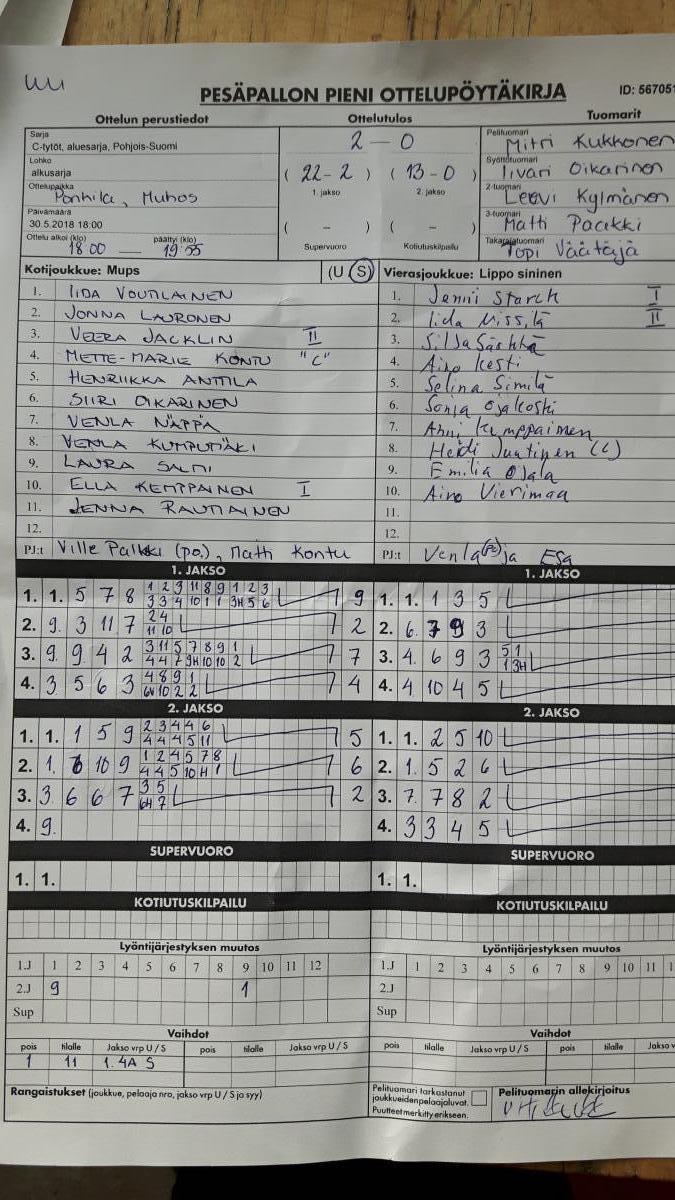 PESÄPALLON PIENI OTTELUPÖYTÄKIRJA
ID: 567051
Ottelun perustiedot
Ottelutulos
Tuomarit
Sarja
C-tytöt, aluesarja, Pohjois-Suomi
Lohko
alkusarja
Ottelupaikka
Ponkila, Muhos
Päivämäärä
30.5.2018 18:00
Ottelu alkoi (klo) päättyi (klo)
18 00 — 19 55
2 — 0
( 22 - 2 ) ( 13 - 0 )
1. jakso 2. jakso
( - ) ( - )
Supervuoro Kotiutuskilpailu
Pelituomari
Mitri Kukkonen
Syöttötuomari
Iivari Oikarinen
2-tuomari
Leevi Kylmänen
3-tuomari
Matti Paakki
Takarajatuomari
Topi Väätäjä
Kotijoukkue: Mups (U S)
1. IIDA VOUTILAINEN
2. JONNA LAURONEN
3. VEERA JACKLIN II
4. METTE-MARIE KONTU "C"
5. HENRIIKKA ANTTILA
6. SIIRI OIKARINEN
7. VENLA NÄPPÄ
8. VENLA KUMPUMÄKI
9. LAURA SALMI
10. ELLA KEMPPAINEN I
11. JENNA RAUTIAINEN
12.
PJ:t Ville Palkki (po.), Matti Kontu
Vierasjoukkue: Lippo sininen
1. Jenni Starck I
2. Iida Missilä II
3. Silja
4. Aino Kesti
5. Selina Similä
6. Sonja Ojakoski
7. Anni Kumppainen
8. Heidi Juutinen (C)
9. Emilia Ojala
10. Aino Vierimaa
11.
12.
PJ:t Venla (PJ) ja Esa
1. JAKSO
1. 1. 5 7 8 1 2 3 11 8 9 1 2 3 9
3 3 4 10 1 1 3H 5 6
2. 9. 3 11 7 2 4 2
11 10
3. 9 9 4 2 3 11 5 7 8 9 1 7
4 4 7 9H 10 10 2
4. 3 5 6 3 4 8 9 1 4
6V 10 2 2
2. JAKSO
1. 1. 1 5 9 2 3 4 4 6 5
4 4 4 5 11
2. 1. 6 10 9 1 2 4 5 7 8 6
4 4 5 10 H 1
3. 3 6 6 7 3 5 2
6H 7
4. 9.
SUPERVUORO
1. 1.
KOTIUTUSKILPAILU
1. JAKSO
1. 1. 1 3 5
2. 6. 7 9 3
3. 4. 6 9 3 5 1
1 3H
4. 4 10 4 5
2. JAKSO
1. 1. 2 5 10
2. 1. 5 2 6
3. 7. 7 8 2
4. 3 3 4 5
SUPERVUORO
1. 1.
KOTIUTUSKILPAILU
Lyöntijärjestyksen muutos
1.J 1 2 3 4 5 6 7 8 9 10 11 12
2.J 9 1
Sup
Vaihdot
pois tilalle Jakso vrp U / S pois tilalle Jakso vrp U / S
1 11 1. 4A S
Lyöntijärjestyksen muutos
1.J 1 2 3 4 5 6 7 8 9 10 11
2.J
Sup
Vaihdot
pois tilalle Jakso vrp U / S pois tilalle Jakso v
Rangaistukset (joukkue, pelaaja nro, jakso vrp U / S ja syy)
Pelituomari tarkastanut
joukkueiden pelaajaluvat.
Puutteet merkitty erikseen.
Pelituomarin allekirjoitus